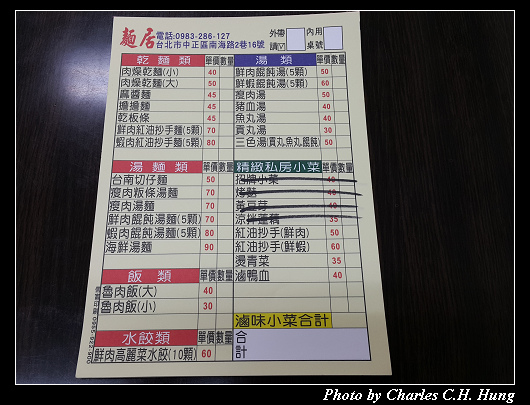 麵居
電話:0983-286-127
台北市中正區南海路2巷16號
外帶
請☑
內用
桌號
乾麵類 單價 數量
肉燥乾麵(小) 40
肉燥乾麵(大) 50
麻醬麵 45
擔擔麵 45
乾板條 45
鮮肉紅油抄手麵(5顆) 70
蝦肉紅油抄手麵(5顆) 80
湯麵類 單價 數量
台南切仔麵 50
瘦肉粄條湯麵 70
瘦肉湯麵 70
鮮肉餛飩湯麵(5顆) 70
蝦肉餛飩湯麵(5顆) 80
海鮮湯麵 90
飯類 單價 數量
魯肉飯(大) 40
魯肉飯(小) 30
水餃類 單價 數量
鮮肉高麗菜水餃(10顆) 60
湯類 單價 數量
鮮肉餛飩湯(5顆) 50
鮮蝦餛飩湯(5顆) 60
瘦肉湯 50
豬血湯 40
魚丸湯 40
貢丸湯 30
三色湯(貢丸魚丸餛飩) 50
精緻私房小菜 單價 數量
招牌小菜 40
烤麩 40
黃豆芽
涼拌蓮藕 35
紅油抄手(鮮肉) 50
紅油抄手(鮮蝦) 60
燙青菜 35
滷鴨血 40
滷味小菜合計
合計
Photo by Charles C.H. Hung